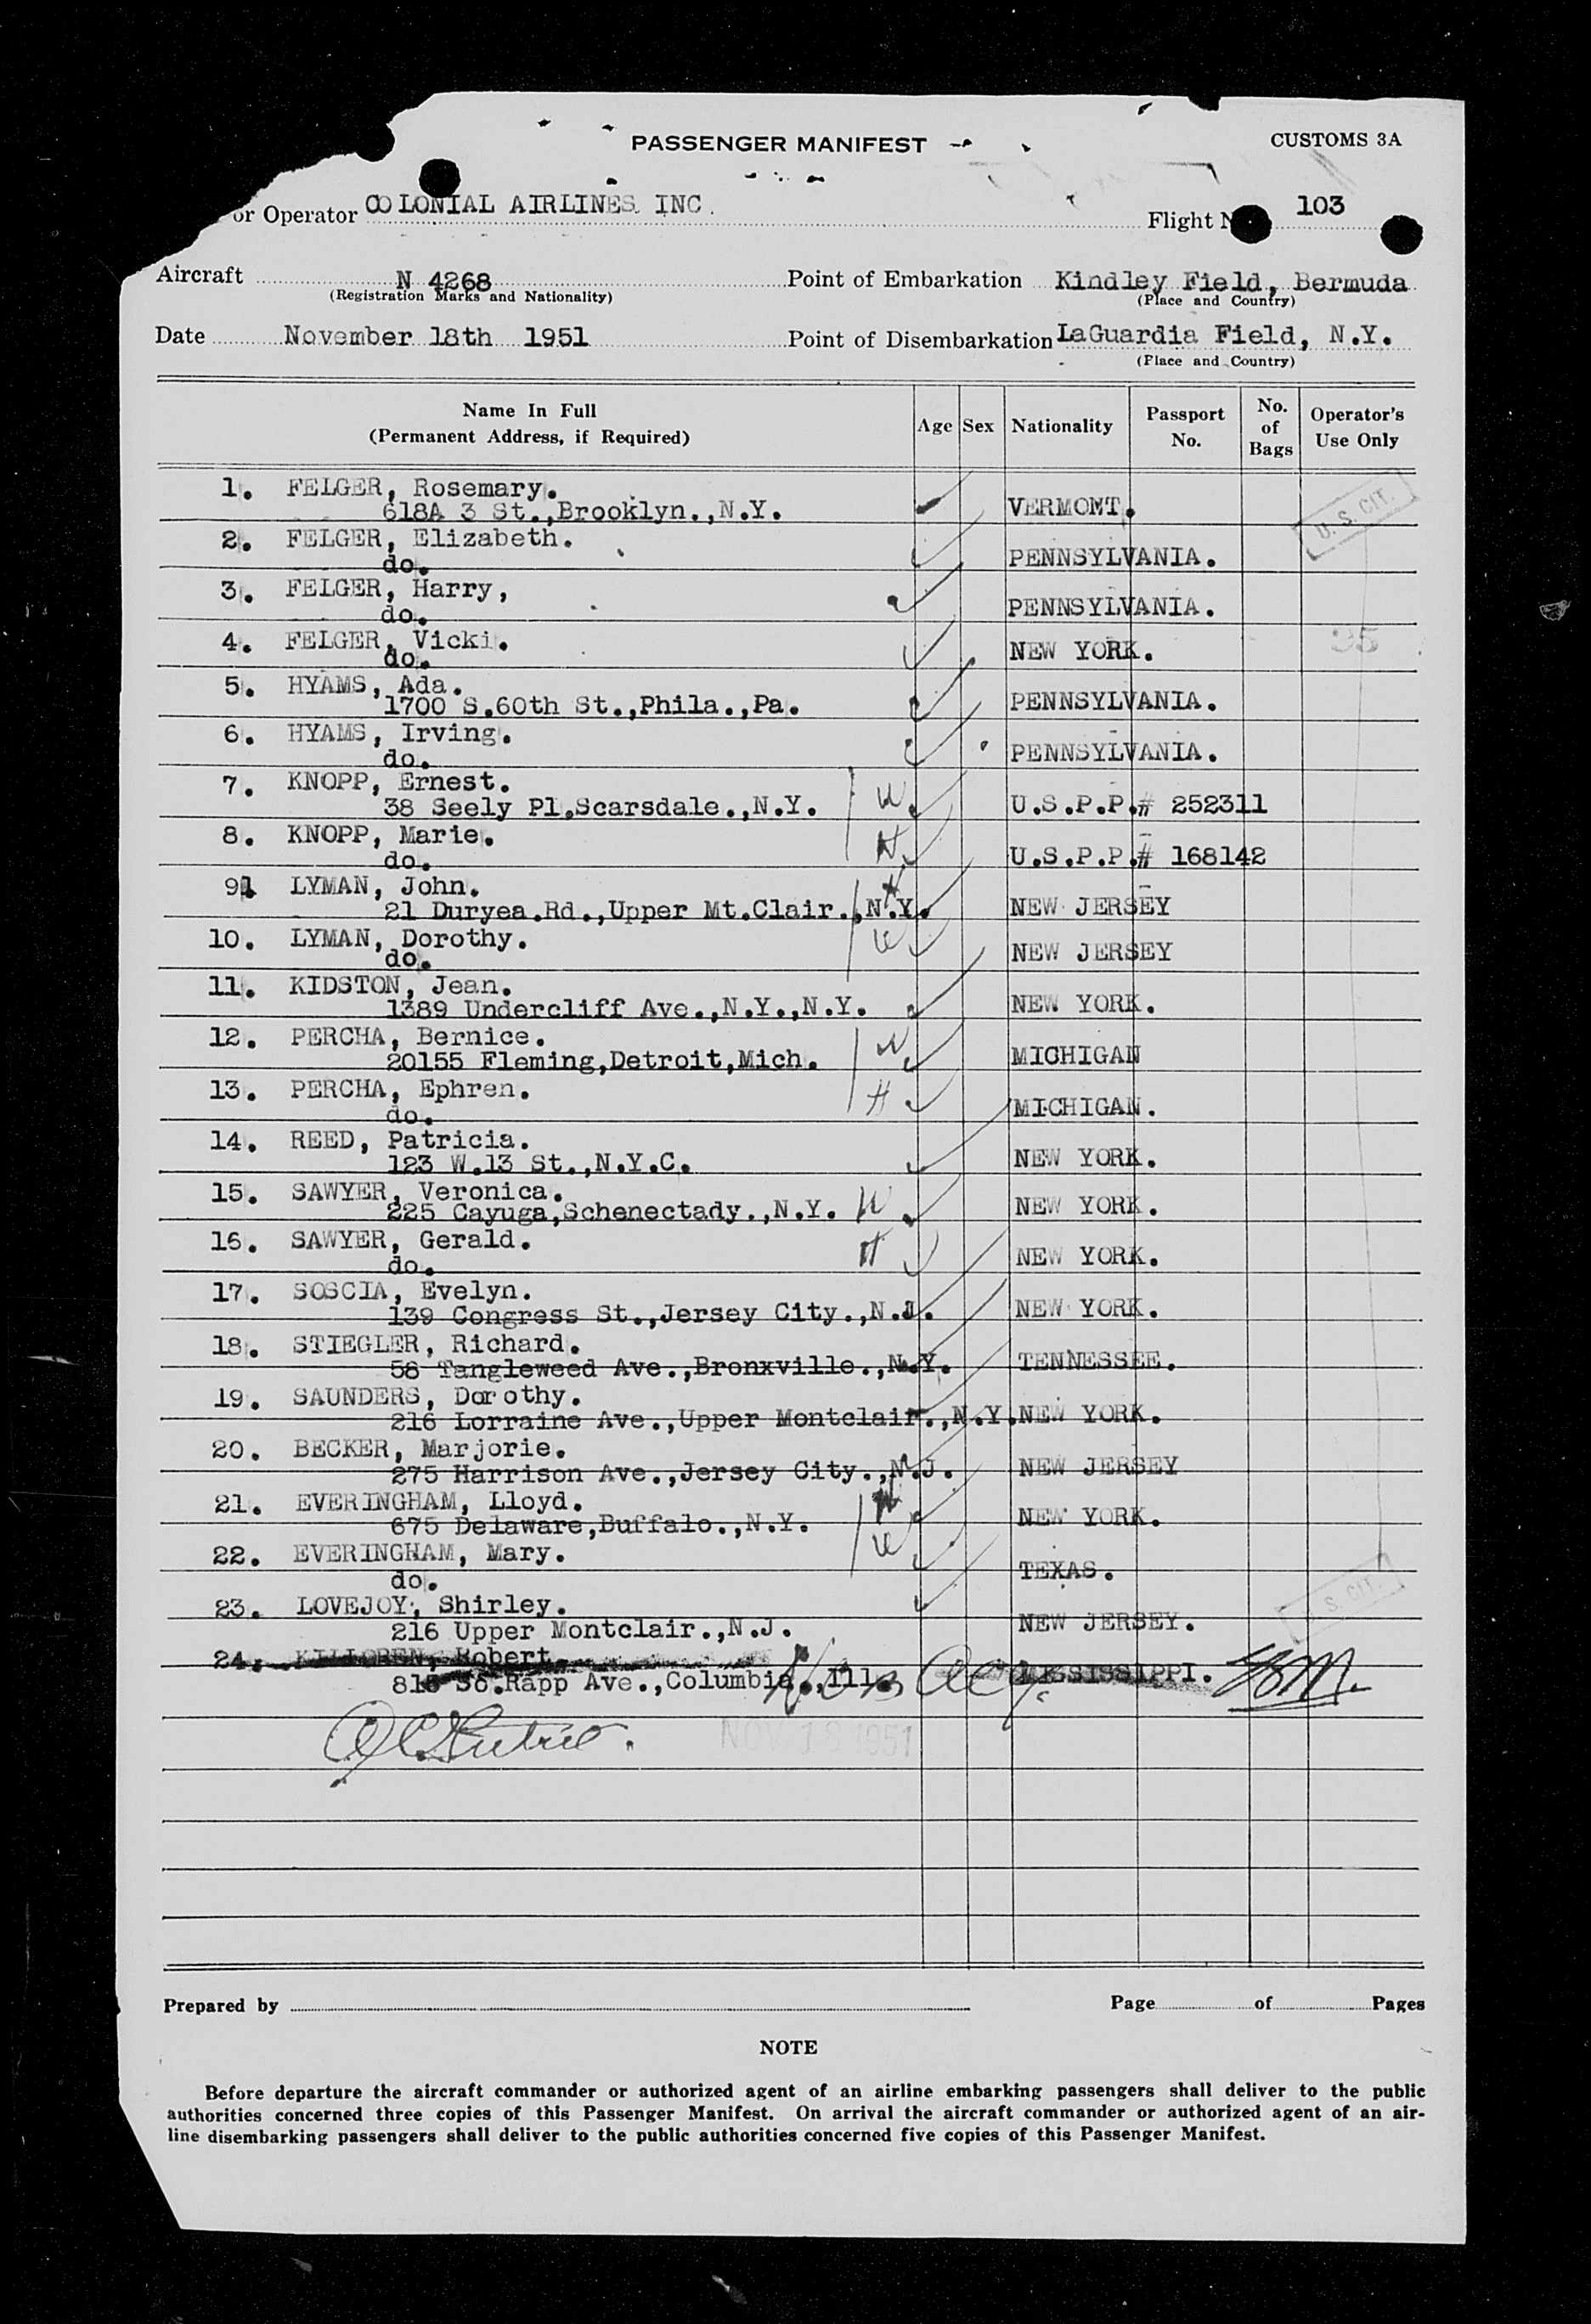 PASSENGER MANIFEST
CUSTOMS 3A
or Operator COLONIAL AIRLINES INC.
Flight N 103
Aircraft N 4268
(Registration Marks and Nationality)
Point of Embarkation Kindley Field, Bermuda
(Place and Country)
Date November 18th 1951
Point of Disembarkation LaGuardia Field, N.Y.
(Place and Country)
Name In Full
(Permanent Address, if Required)
Age Sex Nationality Passport No. No. of Bags Operator's Use Only
1. FELGER, Rosemary.
618A 3 St.,Brooklyn.,N.Y. VERMONT. U. S. CIT.
2. FELGER, Elizabeth.
do. PENNSYLVANIA.
3. FELGER, Harry,
do. PENNSYLVANIA.
4. FELGER, Vicki.
do. NEW YORK.
5. HYAMS, Ada.
1700 S.60th St.,Phila.,Pa. PENNSYLVANIA.
6. HYAMS, Irving.
do. PENNSYLVANIA.
7. KNOPP, Ernest.
38 Seely Pl.Scarsdale.,N.Y. W U.S.P.P.# 252311
8. KNOPP, Marie.
do. H U.S.P.P.# 168142
91 LYMAN, John.
21 Duryea.Rd.,Upper Mt.Clair.,N.Y. H NEW JERSEY
10. LYMAN, Dorothy.
do. W NEW JERSEY
11. KIDSTON, Jean.
1389 Undercliff Ave.,N.Y.,N.Y. NEW YORK.
12. PERCHA, Bernice.
20155 Fleming,Detroit,Mich. W MICHIGAN
13. PERCHA, Ephren.
do. H MICHIGAN.
14. REED, Patricia.
123 W.13 St.,N.Y.C. NEW YORK.
15. SAWYER, Veronica.
225 Cayuga,Schenectady.,N.Y. W NEW YORK.
16. SAWYER, Gerald.
do. H NEW YORK.
17. SOSCIA, Evelyn.
139 Congress St.,Jersey City.,N.J. NEW YORK.
18. STIEGLER, Richard.
58 Tangleweed Ave.,Bronxville.,N.Y. TENNESSEE.
19. SAUNDERS, Dorothy.
216 Lorraine Ave.,Upper Montclair.,N.Y. NEW YORK.
20. BECKER, Marjorie.
275 Harrison Ave.,Jersey City.,N.J. NEW JERSEY
21. EVERINGHAM, Lloyd.
675 Delaware,Buffalo.,N.Y. H NEW YORK.
22. EVERINGHAM, Mary.
do. W TEXAS.
23. LOVEJOY, Shirley.
216 Upper Montclair.,N.J. NEW JERSEY. U. S. CIT.
24. KILLOREN, Robert
816 So.Rapp Ave.,Columbia.,Ill. MISSISSIPPI.
NOV 18 1951
Prepared by
Page of Pages
NOTE
Before departure the aircraft commander or authorized agent of an airline embarking passengers shall deliver to the public
authorities concerned three copies of this Passenger Manifest. On arrival the aircraft commander or authorized agent of an air-
line disembarking passengers shall deliver to the public authorities concerned five copies of this Passenger Manifest.